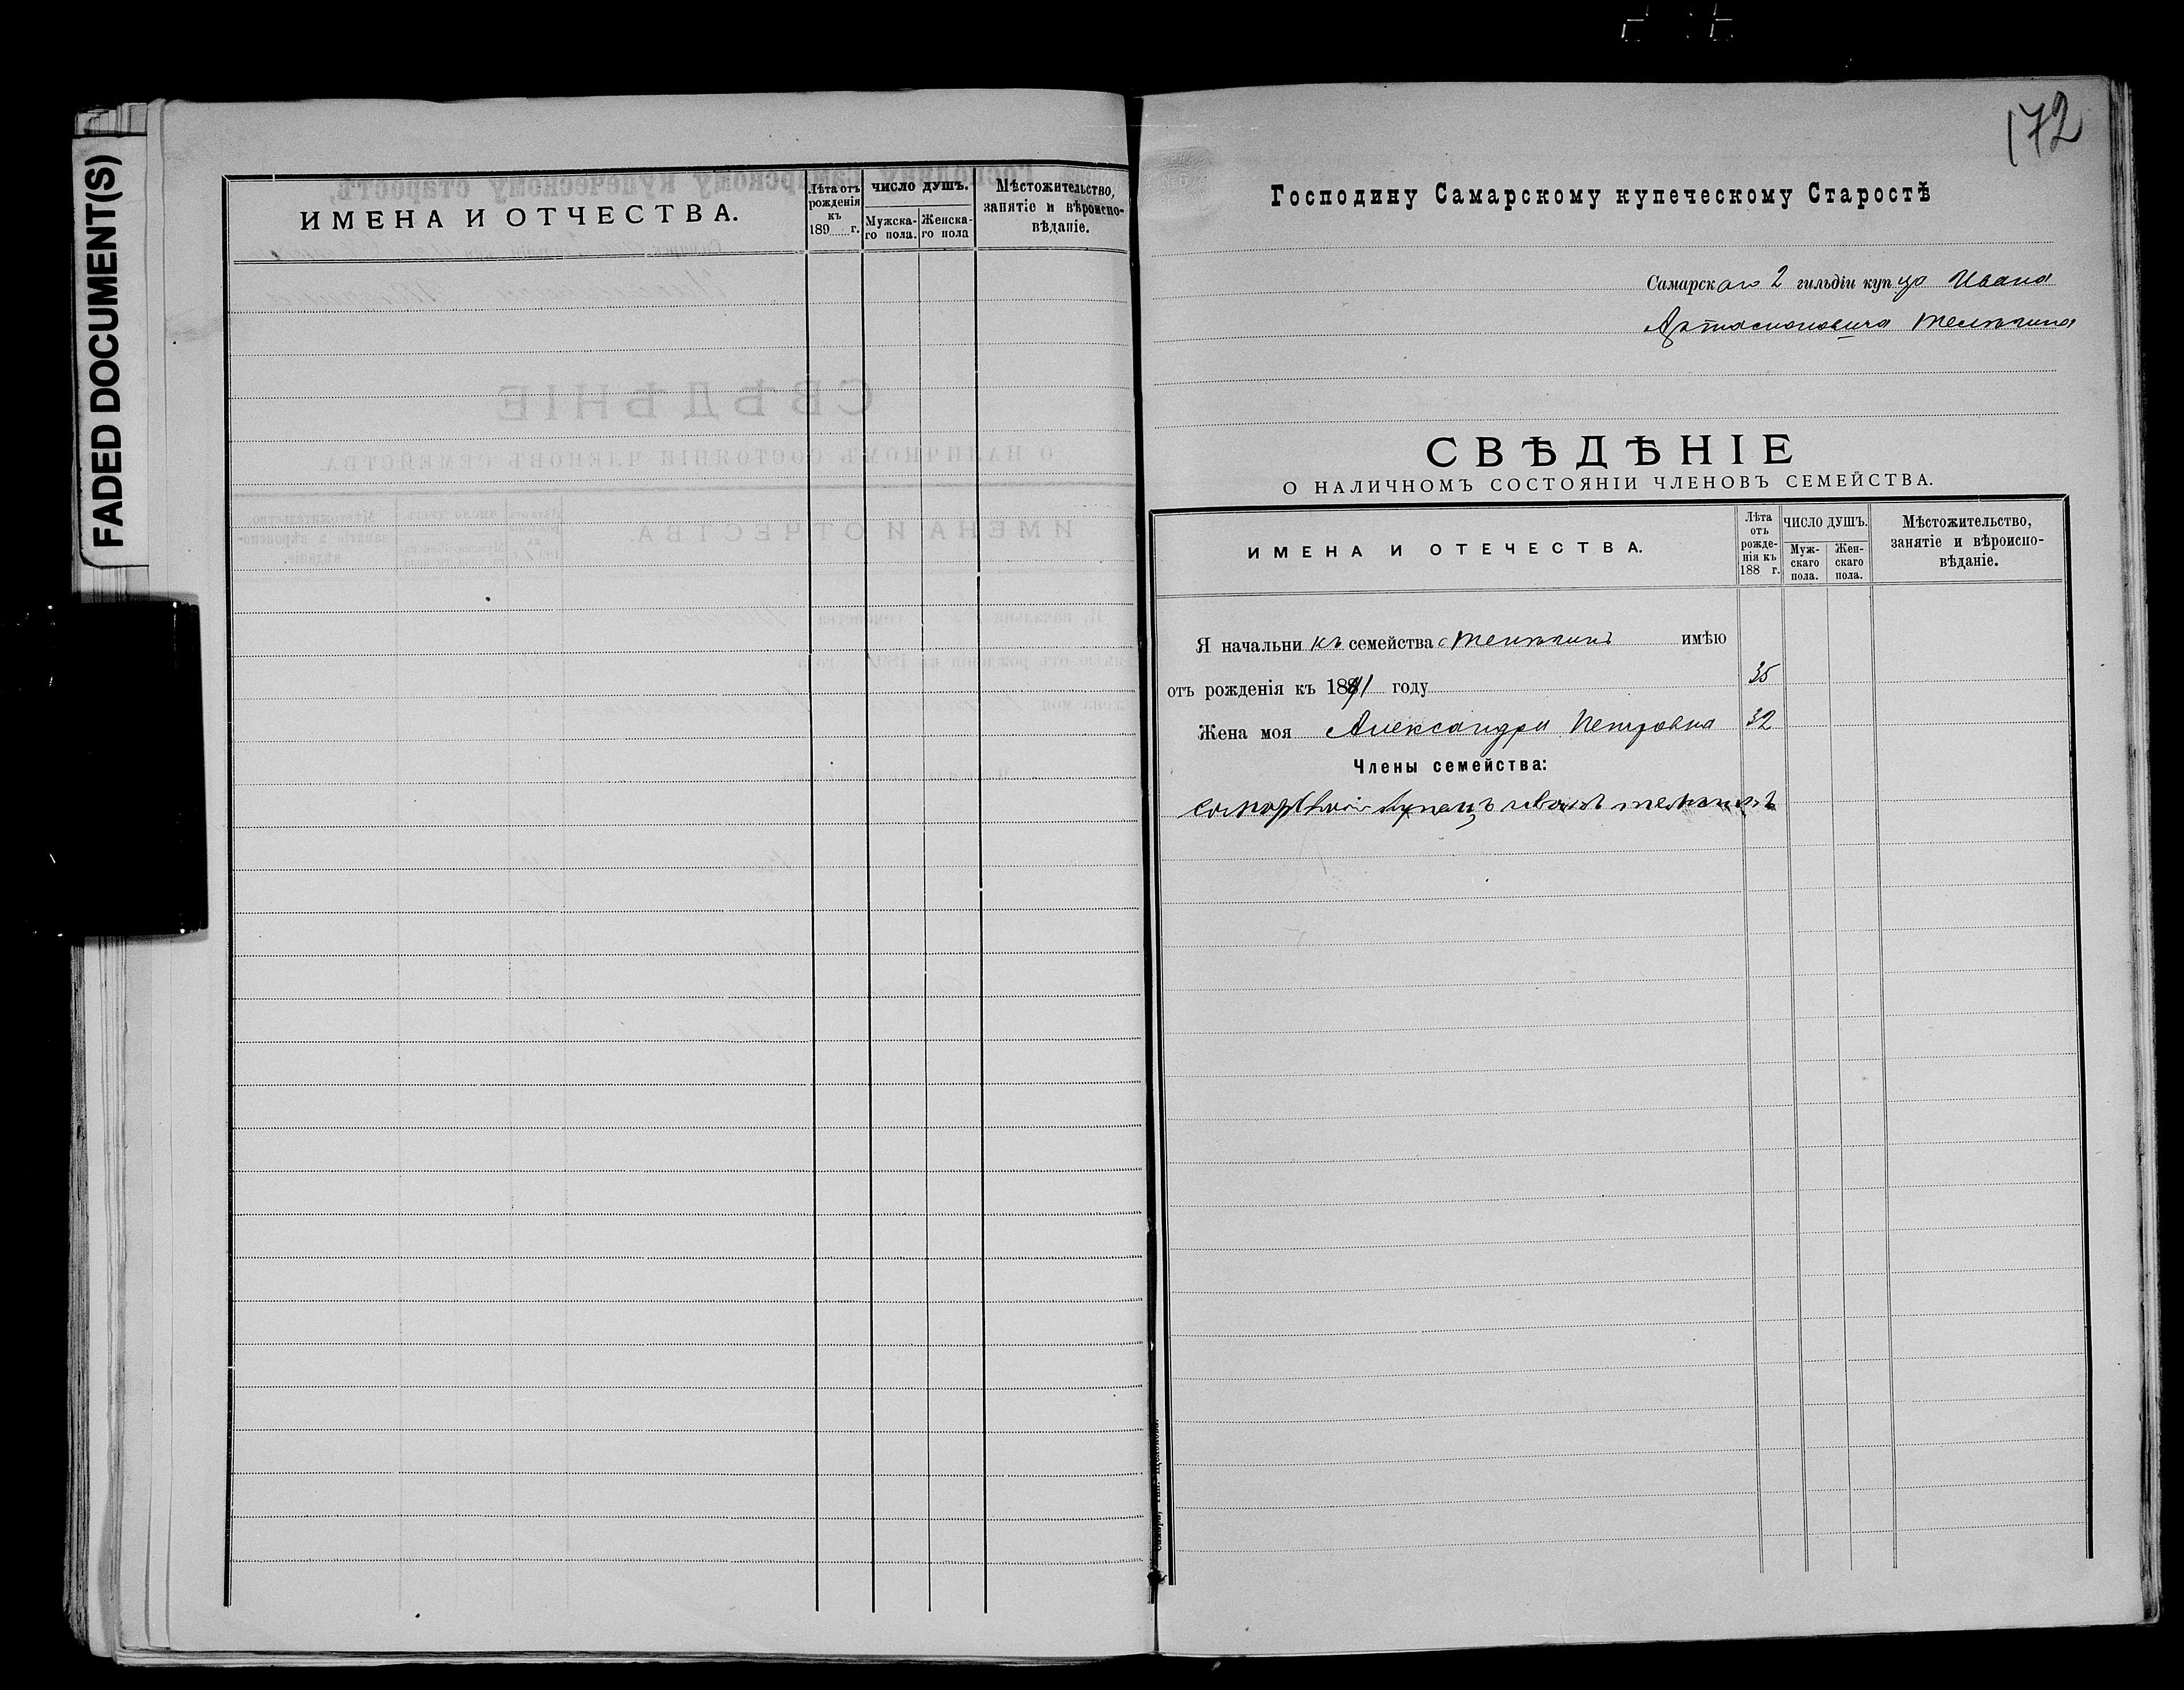 FADED DOCUMENT(S)
ИМЕНА И ОТЧЕСТВА.
Лѣта отъ рожденія къ 189 г.
ЧИСЛО ДУШЪ.
Мужска-го пола.
Женска-го пола
Мѣстожительство,
занятіе и вѣроиспо-
вѣданіе.
172
Господину Самарскому купеческому Старостѣ
Самарскаго 2 гильдіи купца Ивана
СВѢДѢНІЕ
О НАЛИЧНОМЪ СОСТОЯНІИ ЧЛЕНОВЪ СЕМЕЙСТВА.
ИМЕНА И ОТЕЧЕСТВА.
Лѣта отъ рожде-нія къ 188 г.
ЧИСЛО ДУШЪ.
Муж-скаго пола.
Жен-скаго пола.
Мѣстожительство,
занятіе и вѣроиспо-
вѣданіе.
Я начальникъ семейства имѣю
отъ рожденія къ 1891 году 35
Жена моя Александра Петровна 32
Члены семейства:
купецъ